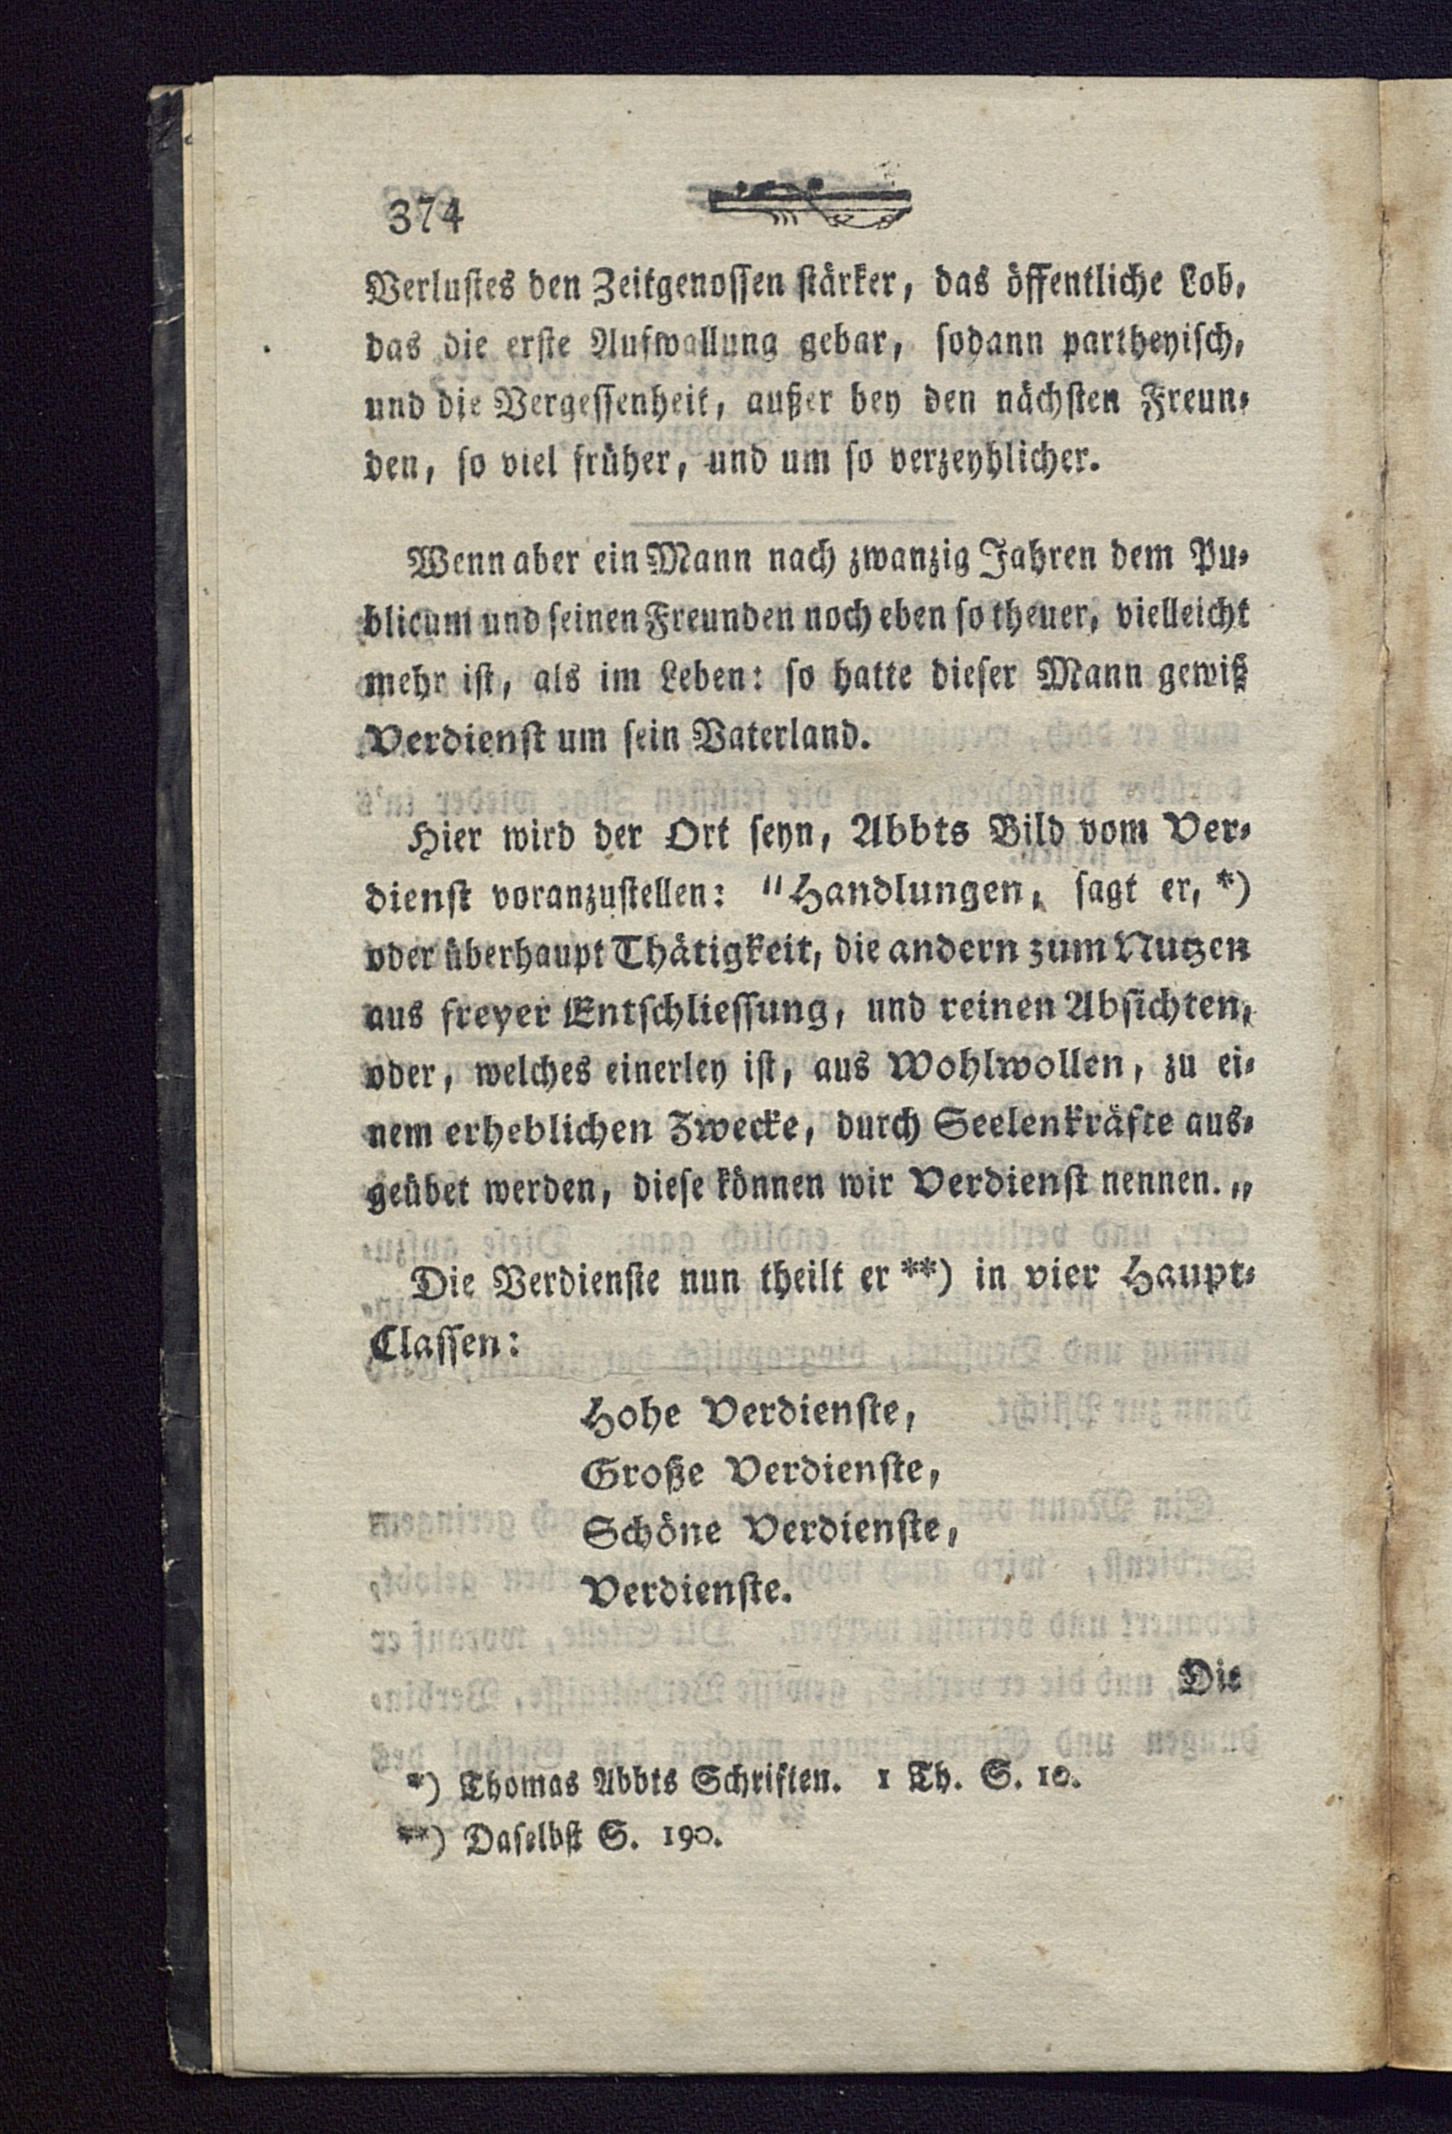 374
Verlustes den Zeitgenossen stärker, das öffentliche Lob,
das die erste Aufwallung gebar, sodann partheyisch,
und die Vergessenheit, außer bey den nächsten Freun-
den, so viel früher, und um so verzeyhlicher.
Wenn aber ein Mann nach zwanzig Jahren dem Pu-
blicum und seinen Freunden noch eben so theuer, vielleicht
mehr ist, als im Leben: so hatte dieser Mann gewiß
Verdienst um sein Vaterland.
Hier wird der Ort seyn, Abbts Bild vom Ver-
dienst voranzustellen: "Handlungen, sagt er, *)
oder überhaupt Thätigkeit, die andern zum Nutzen
aus freyer Entschliessung, und reinen Absichten,
oder, welches einerley ist, aus Wohlwollen, zu ei-
nem erheblichen Zwecke, durch Seelenkräfte aus-
geübet werden, diese können wir Verdienst nennen.„
Die Verdienste nun theilt er **) in vier Haupt-
Classen:
Hohe Verdienste,
Große Verdienste,
Schöne Verdienste,
Verdienste.
Die
*) Thomas Abbts Schriften. 1 Th. S. 10.
**) Daselbst S. 190.